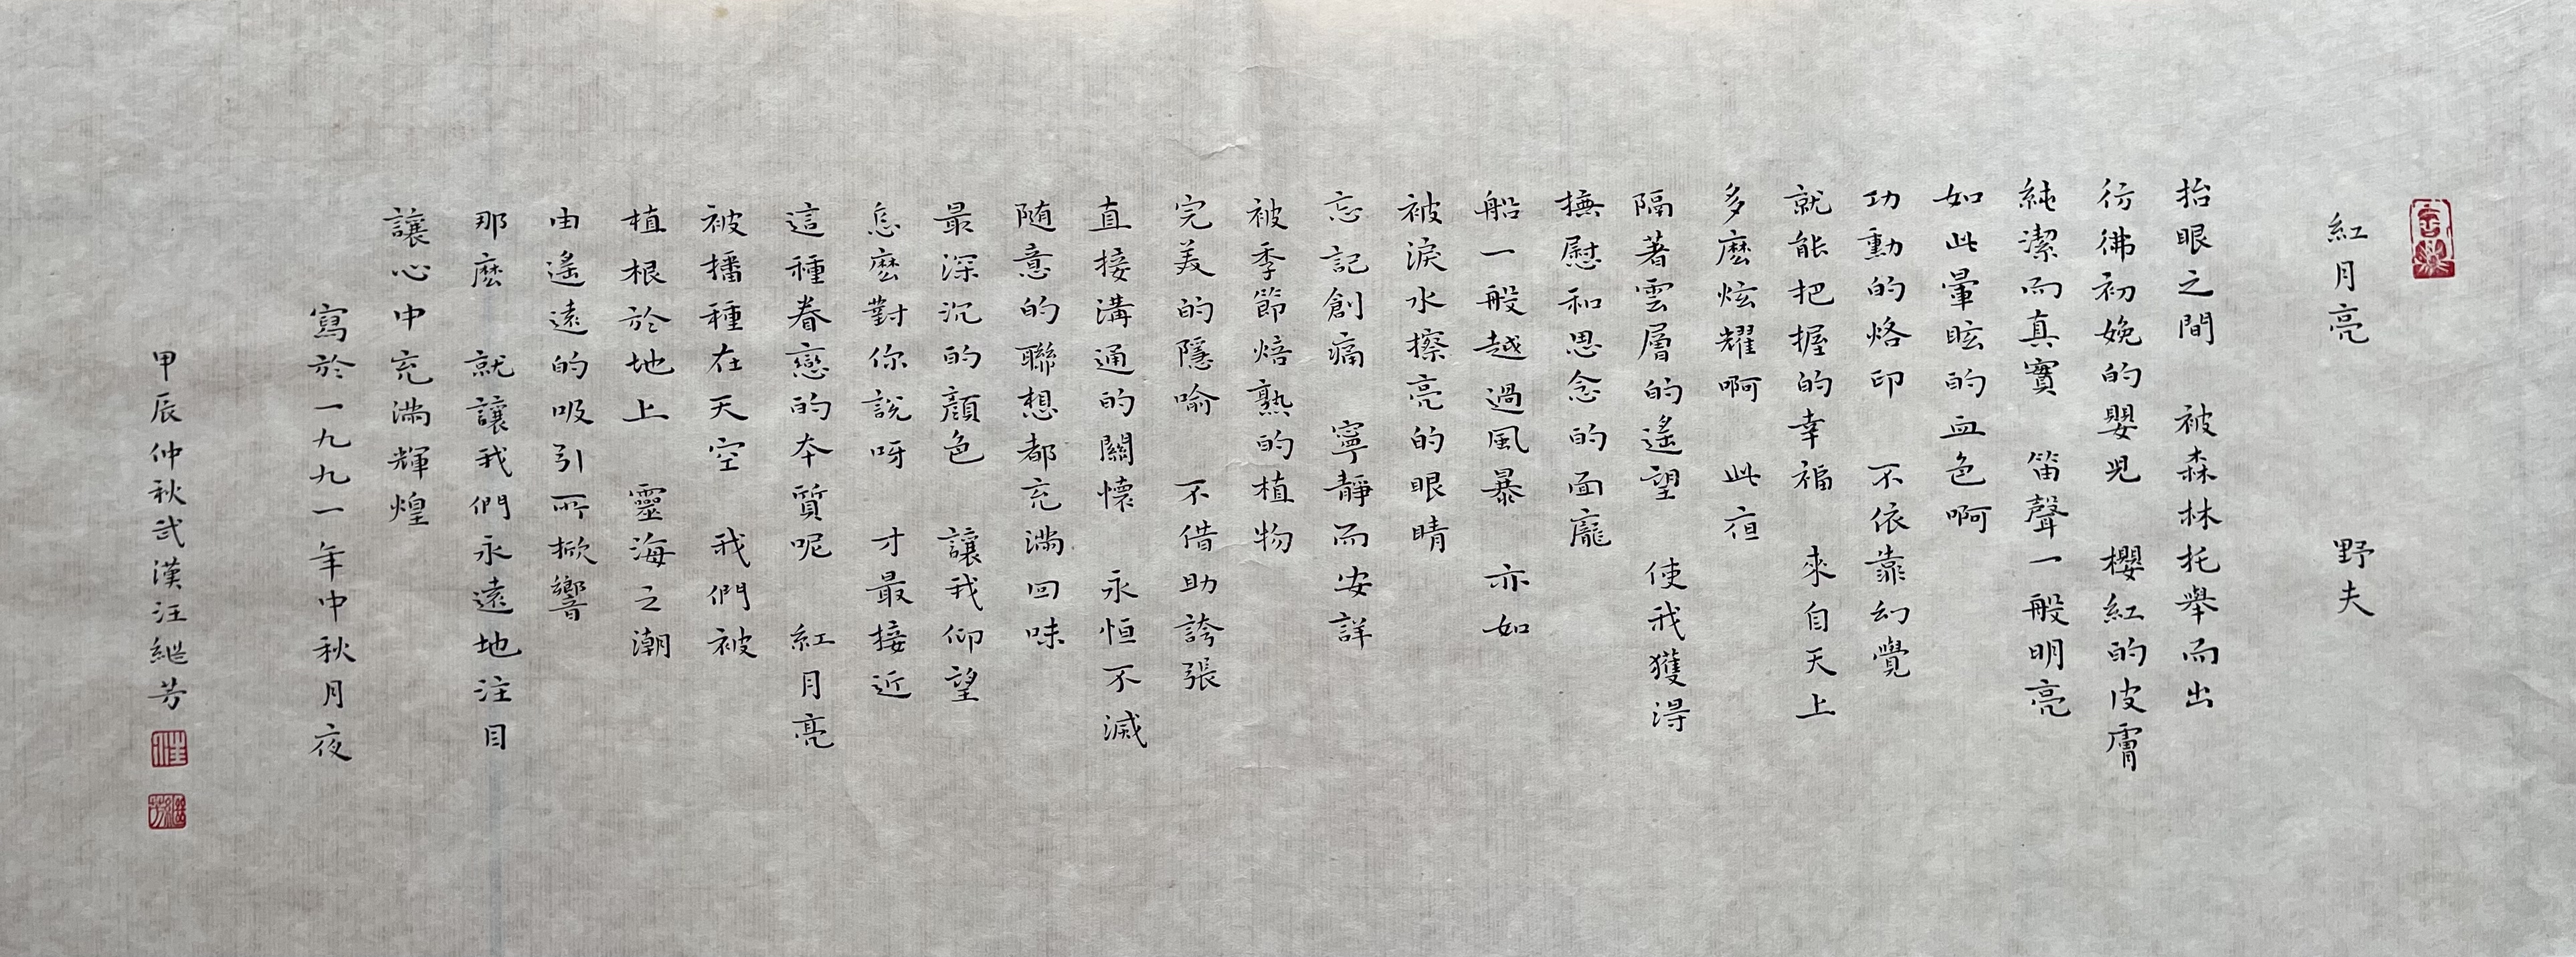 紅月亮 野夫
抬眼之間 被森林托舉而出
彷彿初娩的嬰児 櫻紅的皮膚
純潔而真實 笛聲一般明亮
如此暈眩的血色啊
功勳的烙印 不依靠幻覺
就能把握的幸福 來自天上
多麽炫耀啊 此夜
隔著雲層的遙望 使我獲得
撫慰和思念的面龐
船一般越過風暴 亦如
被淚水擦亮的眼睛
忘記創痛 寧靜而安詳
被季節焙熟的植物
完美的隱喻 不借助誇張
直接溝通的關懷 永恒不滅
随意的聯想都充滿回味
最深沉的顔色 讓我仰望
怎麽對你說呀 才最接近
這種眷戀的本質呢 紅月亮
被播種在天空 我們被
植根於地上 靈海之潮
由遙遠的吸引所掀響
那麽 就讓我們永遠地注目
讓心中充滿輝煌
寫於一九九一年中秋月夜
甲辰仲秋武漢汪継芳
汪
繼芳